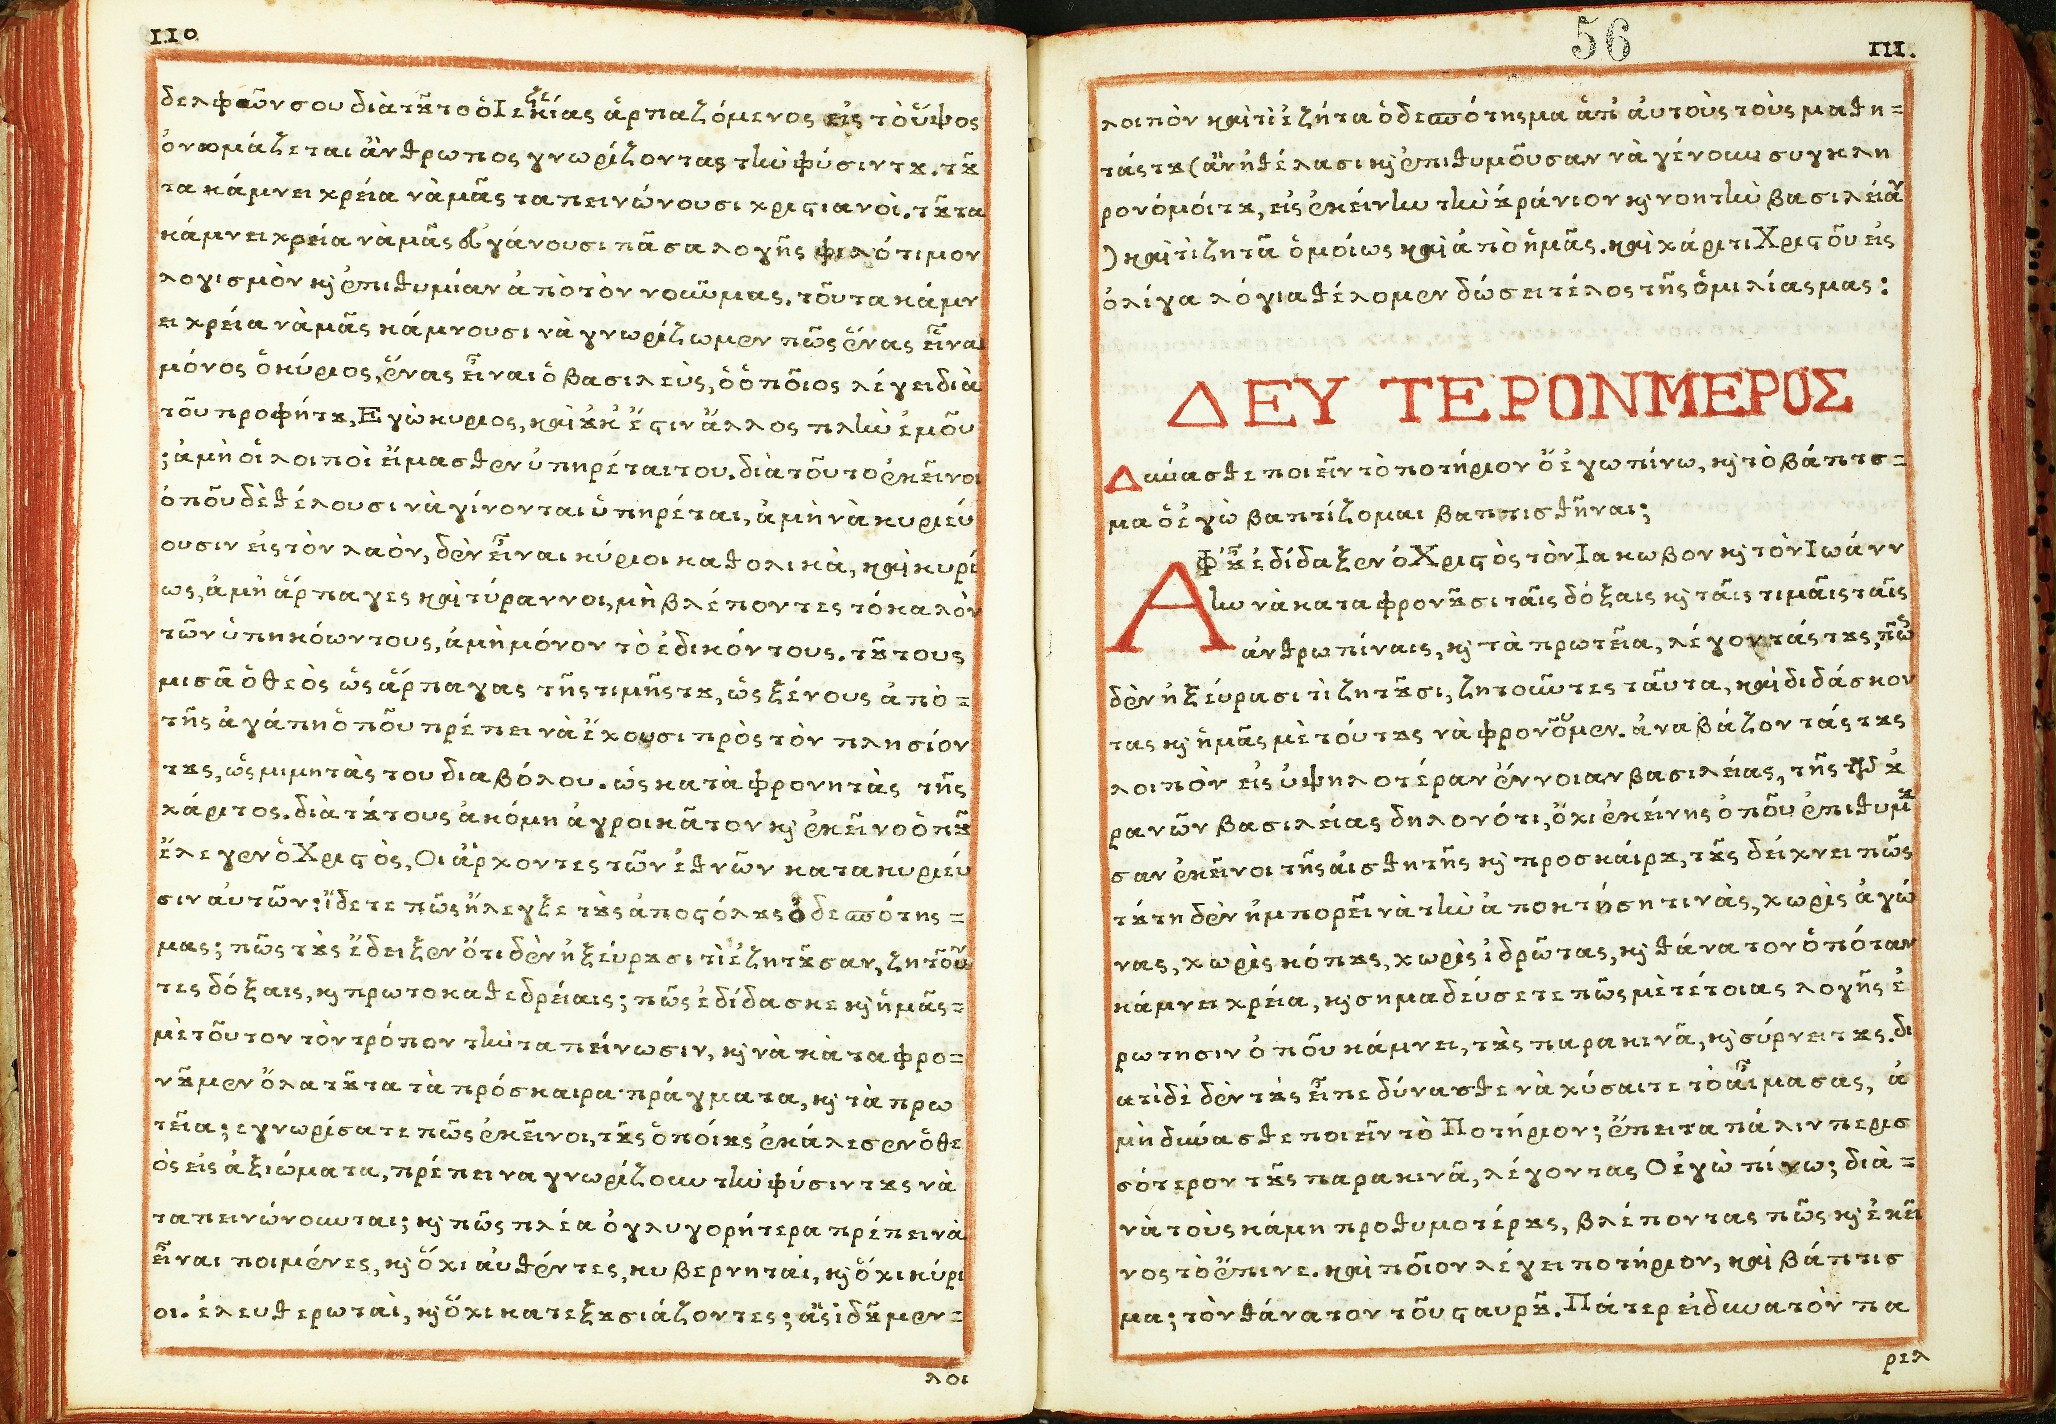 110
δελφῶν σου διὰ τȣ̃το ὁ Ἰεζεκίας ἁρπαζόμενος εἰς τὸ ὕψος
ὀνομάζεται ἄνθρωπος γνωρίζοντας τὴν φύσιν τȣ. τȣ̃
τα κάμνει χρεία νὰ μᾶς ταπεινώνουσι χριστιανοὶ. τȣ̃τα
κάμνει χρεία νὰ μᾶς εὐγάνουσι πᾶσα λογῆς φιλότιμον
λογισμὸν κ̀ ἐπιθυμίαν ἀπὸ τὸν νοῦν μας. τοῦτα κάμν
ει χρεία νὰ μᾶς κάμνουσι νὰ γνωρίζωμεν πῶς ἕνας εἶναι
μόνος ὁ κύριος, ἕνας εἶναι ὁ βασιλεὺς, ὁ ὁποῖος λέγει διὰ
τοῦ προφήτȣ, Εγὼ κυριος, καὶ ȣ̓κ ἔστιν ἄλλος πλὴν ἐμοῦ
; ἀμὴ οἱ λοιποὶ εἴμασθεν ὑπηρέται του. διὰ τοῦτο ἐκεῖνοι
ὁποῦ δὲ θέλουσι νὰ γίνονται ὑπηρέται, ἀμὴ νὰ κυριεύ
ουσιν εἰς τὸν λαὸν, δὲν εἶναι κύριοι καθολικὰ, καὶ κυρί
ως, ἀμὴ ἅρπαγες καὶ τύραννοι, μὴ βλέποντες τὸ καλὸν
τῶν ὑπηκόων τους, ἀμὴ μόνον τὸ ἐδικόν τους. τȣ̃ τους
μισᾶ ὁ θεὸς ὡς ἅρπαγας τῆς τιμῆς τȣ, ὡς ξένους ἀπὸ =
τῆς ἀγάπη ὁποῦ πρέπει νὰ ἔχουσι πρὸς τὸν πλησίον
τȣς, ὡς μιμητὰς του διαβόλου. ὡς καταφρονητὰς τῆς
χάριτος. διὰ τȣ́τους ἀκόμη ἀγροικᾶτον κ̀ ἐκεῖνο ὁπȣ̃
ἔλεγεν ὁ Χριστὸς, Οι ἄρχοντες τῶν ἐθνῶν κατακυριεύ
σιν αὐτῶν: ἴδετε πῶς ἤλεγξε τȣ̀ς ἀποστόλȣς ὁ δεσπότης =
μας; πῶς τȣ̀ς ἔδειξεν ὅτι δὲν ἠξεύρȣσι τὶ ἐζητȣ̃σαν, ζητοῦν
τες δόξαις, κ̀ πρωτοκαθεδρείαις; πῶς ἐδίδασκε κ̀ ἡμᾶς =
μὲ τοῦτον τὸν τρόπον τὴν ταπείνωσιν, κ̀ νὰ καταφρο =
νȣ̃μεν ὅλα τȣ̃τα τὰ πρόσκαιρα πράγματα, κ̀ τὰ πρω
τεῖα; εγνωρίσατε πῶς ἐκεῖνοι, τȣ̀ς ὁποίȣς ἐκάλεσεν ὁ θε
ὸς εἰς ἀξιώματα, πρέπει να γνωρίζουν τὴν φύσιν τȣς νὰ
ταπεινώνουνται; κ̀ πῶς πλέα ὀγλυγορήτερα πρέπει νὰ
εἶναι ποιμένες, κ̀ ὄχι αὐθέντες, κυβερνηταὶ, κ̀ ὄχι κύρι
οι. ἐλευθερωταὶ, κ̀ ὄχι κατεξȣσιάζοντες; ἂς ἰδȣ̃μεν =
λοι
56
111.
λοιπὸν καὶ τὶ ἐζήτα ὁ δεσπότης μα ἀπ' αὐτοὺς τοὺς μαθη =
τάς τȣ (ἂν ἠθέλασι κ̀ ἐπιθυμοῦσαν νὰ γένουν συγκλη
ρονόμοι τȣ, εἰς ἐκείνην τὴν ȣ̓ράνιον κ̀ νοητὴν βασιλείαν
) καὶ τὶ ζητᾶ ὁμοίως καὶ ἀπὸ ἡμᾶς. καὶ χάριτι Χριστοῦ εἰς
ὀλίγα λόγια θέλομεν δώσει τέλος τῆς ὁμιλίας μας:
ΔΕΥΤΕΡΟΝ ΜΕΡΟΣ
Δύνασθε ποιεῖν τὸ ποτήριον ὃ ἐγω πίνω, κ̀ τὸ βάπτσ =
μα ὃ ἐγὼ βαπτίζομαι βαπτισθῆναι;
Αφ' ȣ̃ ἐδίδαξεν ὁ Χριστὸς τὸν Ιακωβον κ̀ τὸν Ιωάνν
ην νὰ καταφρονȣ̃σι ταῖς δόξαις κ̀ ταῖς τιμαῖς ταῖς
ἀνθρωπίναις, κ̀ τὰ πρωτεῖα, λέγοντάς τȣς, πῶς
δὲν ἠξεύρασι τὶ ζητȣ̃σι, ζητοῦντες ταῦτα, καὶ διδάσκον
τας κ̀ ἡμᾶς μὲ τούτȣς νὰ φρονοῦμεν. ἀναβάζοντάς τȣς
λοιπὸν εἰς ὑψηλοτέραν ἔννοιαν βασιλείας, τῆς τῶν ȣ̓
ρανῶν βασιλείας δηλονότι, ὄχι ἐκείνης ὁποῦ ἐπιθυμȣ̃
σαν ἐκεῖνοι τῆς αἰσθητῆς κ̀ προσκαίρȣ, τȣ̀ς δείχνει πῶς
τȣ́τη δὲν ἠμπορεῖ νὰ τὴν ἀποκτήση τινὰς, χωρὶς ἀγώ
νας, χωρὶς κόπȣς, χωρὶς ἰδρῶτας, κ̀ θάνατον ὁπόταν
κάμνει χρεία, κ̀ σημαδεύσετε πῶς μὲ τέτοιας λογῆς ἐ
ρωτησιν ὁποῦ κάμνει, τȣ̀ς παρακινᾶ, κ̀ σύρνει τȣς. δι
ατὶ δὲ δὲν τȣ̀ς εἶπε δύνασθε νὰ χύσαιτε τὸ αἷμα σας, ἀ
μὴ δύνασθε ποιεῖν τὸ Ποτήριον; ἔπειτα πάλιν περισ
σότερον τȣ̀ς παρακινᾶ, λέγοντας Ο ἐγὼ πίνω; διὰ =
νὰ τοὺς κάμη προθυμοτέρȣς, βλέποντας πῶς κ̀ ἐκεῖ
νος τὸ ἔπινε. καὶ ποῖον λέγει ποτήριον, καὶ βάπτισ
μα; τὸν θάνατον τοῦ σταυρȣ̃. Πάτερ εἰ δυνατὸν πα
ρελ